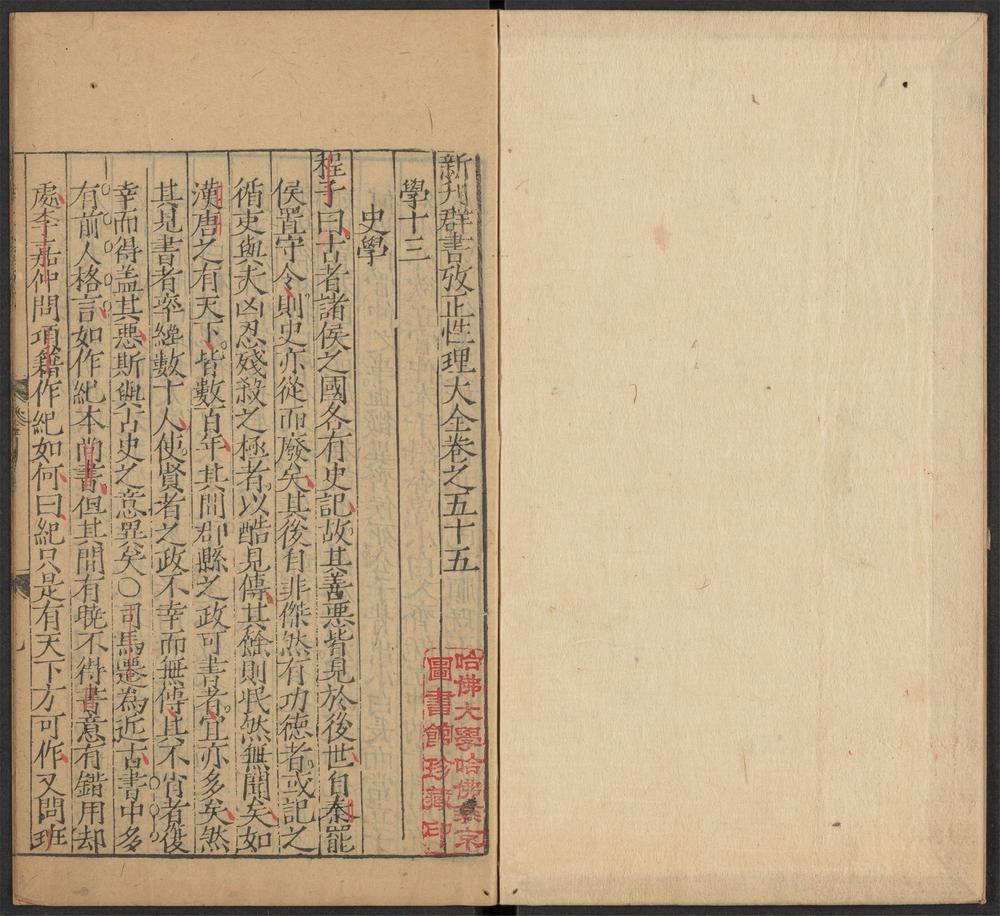 新刋群書攷正性理大全卷之五十五
學十三
史學
程子曰古者諸侯之國各有史記故其善惡皆見於後世自秦罷
侯置守令則史亦從而廢矣其後自非傑然有功德者或記之
循吏與夫凶忍殘殺之極者以酷見傳其餘則泯然無聞矣如
漢唐之有天下皆數百年其間郡縣之政可書者宜亦多矣然
其見書者卒纔數十人使賢者之政不幸而無傳其不肖者復
幸而得盖其惡斯與古史之意異矣○司馬遷為近古書中多
有前人格言如作紀本尚書但其間有曉不得書意有錯用却
處李嘉仲問項籍作紀如何曰紀只是有天下方可作又問班
哈佛大學哈佛燕京
圖書館珍藏印